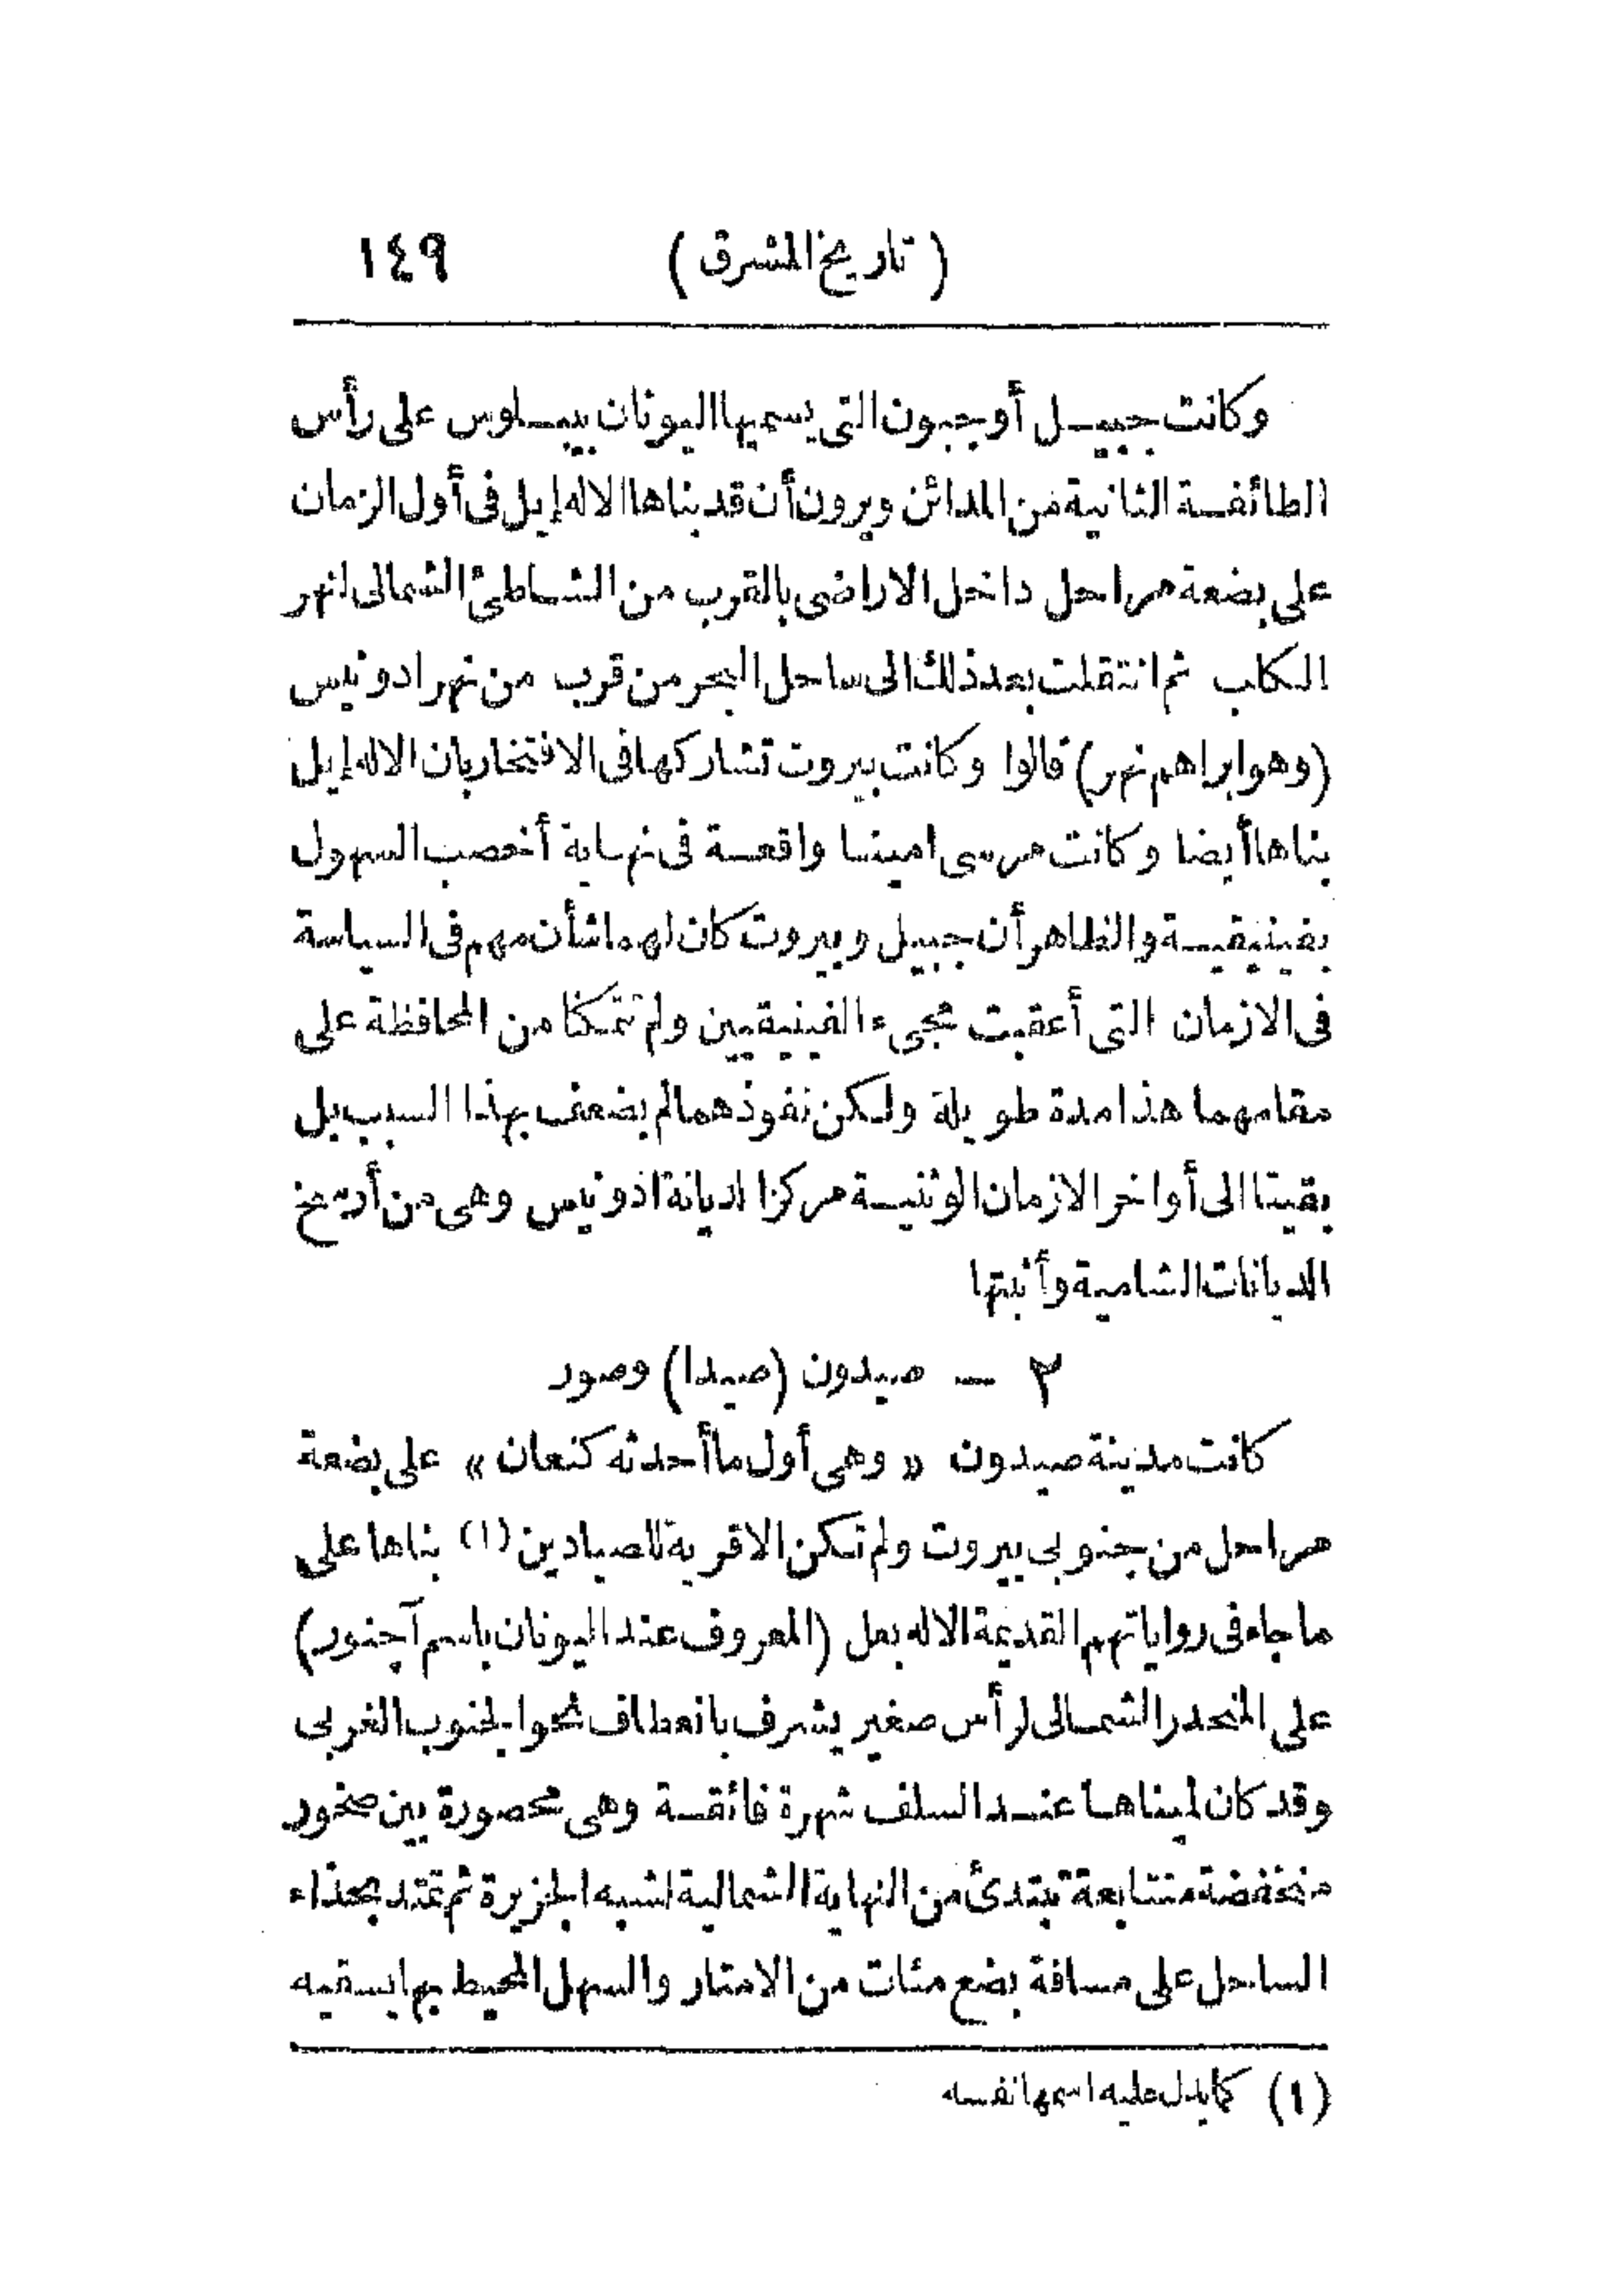 (تاريخ المشرق) ١٤٩
وكانت جبيل أو جبون التى يسميها اليونان بيبلوس على رأس
الطائفة الثانية من المدائن ويرون أن قد بناها الاله إيل فى أول الزمان
على بضعة مراحل داخل الاراضى بالقرب من الشاطئ الشمالى لنهر
الكلب ثم انتقلت بعد ذلك الى ساحل البحر من قرب من نهر ادونيس
(وهو ابراهم نهر) قالوا وكانت بيروت تشاركها فى الافتخار بان الاله إيل
بناها أيضا وكانت مرسى امينا واقعة فى نهاية أخصب السهول
بفينيقية والظاهر أن جبيل وبيروت كان لهما شأن مهم فى السياسة
فى الازمان التى أعقبت مجىء الفينيقيين ولم تتمكنا من المحافظة على
مقامهما هذا مدة طويلة ولكن نفوذهما لم يضعف بهذا السبب بل
بقيتا الى أواخر الازمان الوثنية مركزا لديانة اذونيس وهى من أرسخ
الديانات الشامية وأثبتها
٣ — صيدون (صيدا) وصور
كانت مدينة صيدون « وهى أول ما أحدثه كنعان » على بضعة
مراحل من جنوبى بيروت ولم تكن الا قرية للصيادين (١) بناها على
ما جاء فى رواياتهم القديمة الاله بعل (المعروف عند اليونان باسم آجنور)
على المنحدر الشمالى لرأس صغير يشرف بانعطاف نحو الجنوب الغربى
وقد كان لميناها عند السلف شهرة فائقة وهى محصورة بين صخور
منخفضة متتابعة تبتدئ من النهاية الشمالية لشبه الجزيرة ثم تمتد بحذاء
الساحل على مسافة بضع مئات من الامتار والسهل المحيط بها يسقيه
(١) كما يدل عليه اسمها نفسه